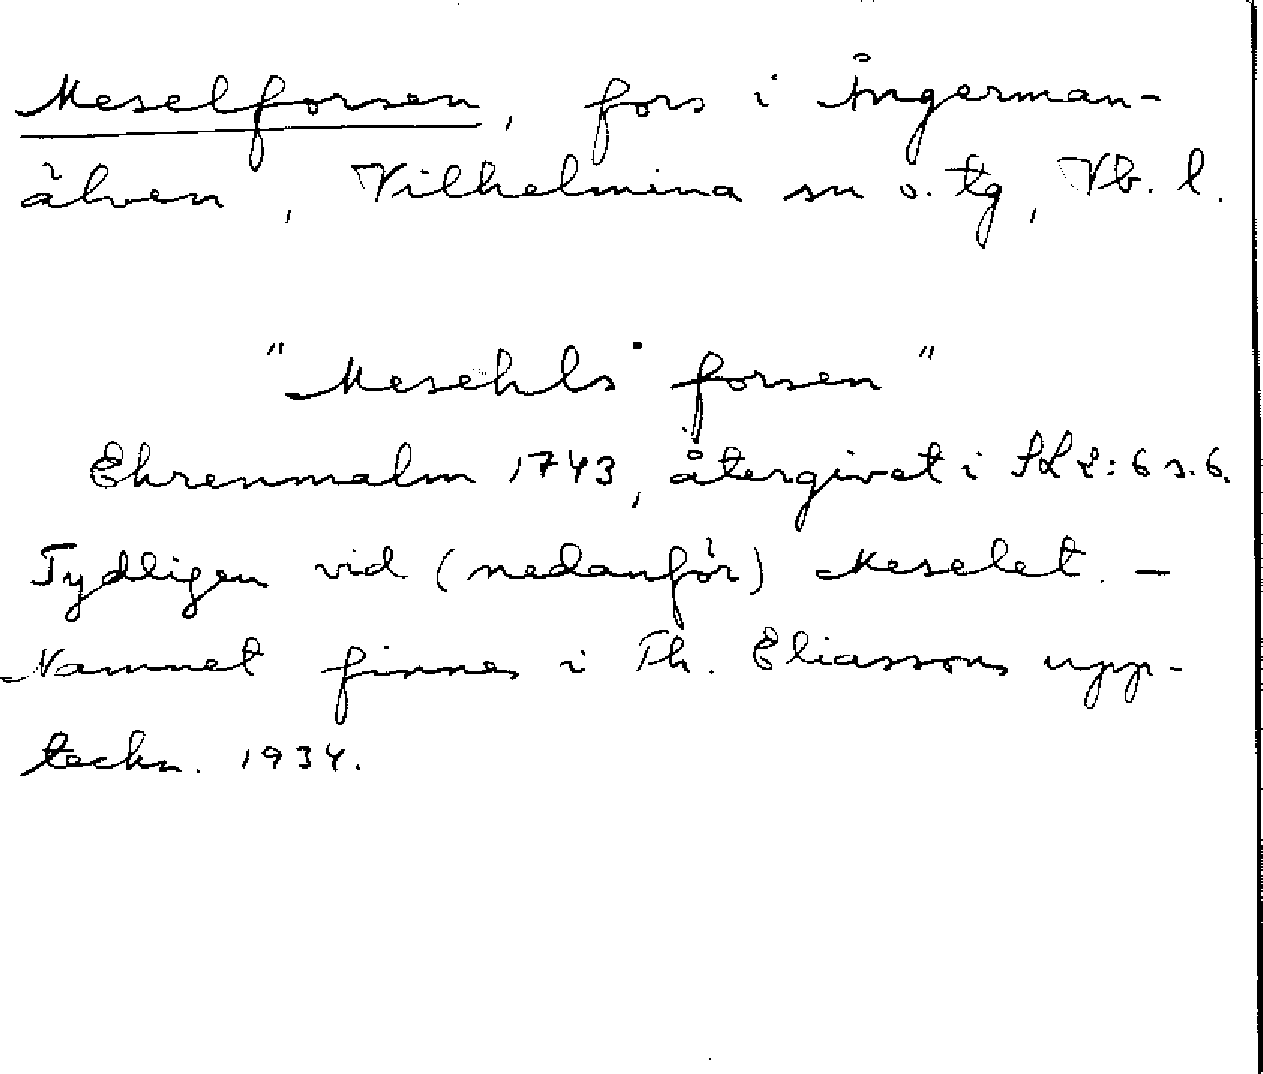 Meselforsen, fors i Ångerman-
älven, Vilhelmina sn o. tg, Vb. l.
"Mesehls forsen"
Ehrenmalm 1743, återgivet i SL 2:6 s. 6.
Tydligen vid (nedanför) Meselet. –
Namnet finnes i Th. Eliassons upp-
teckn. 1934.